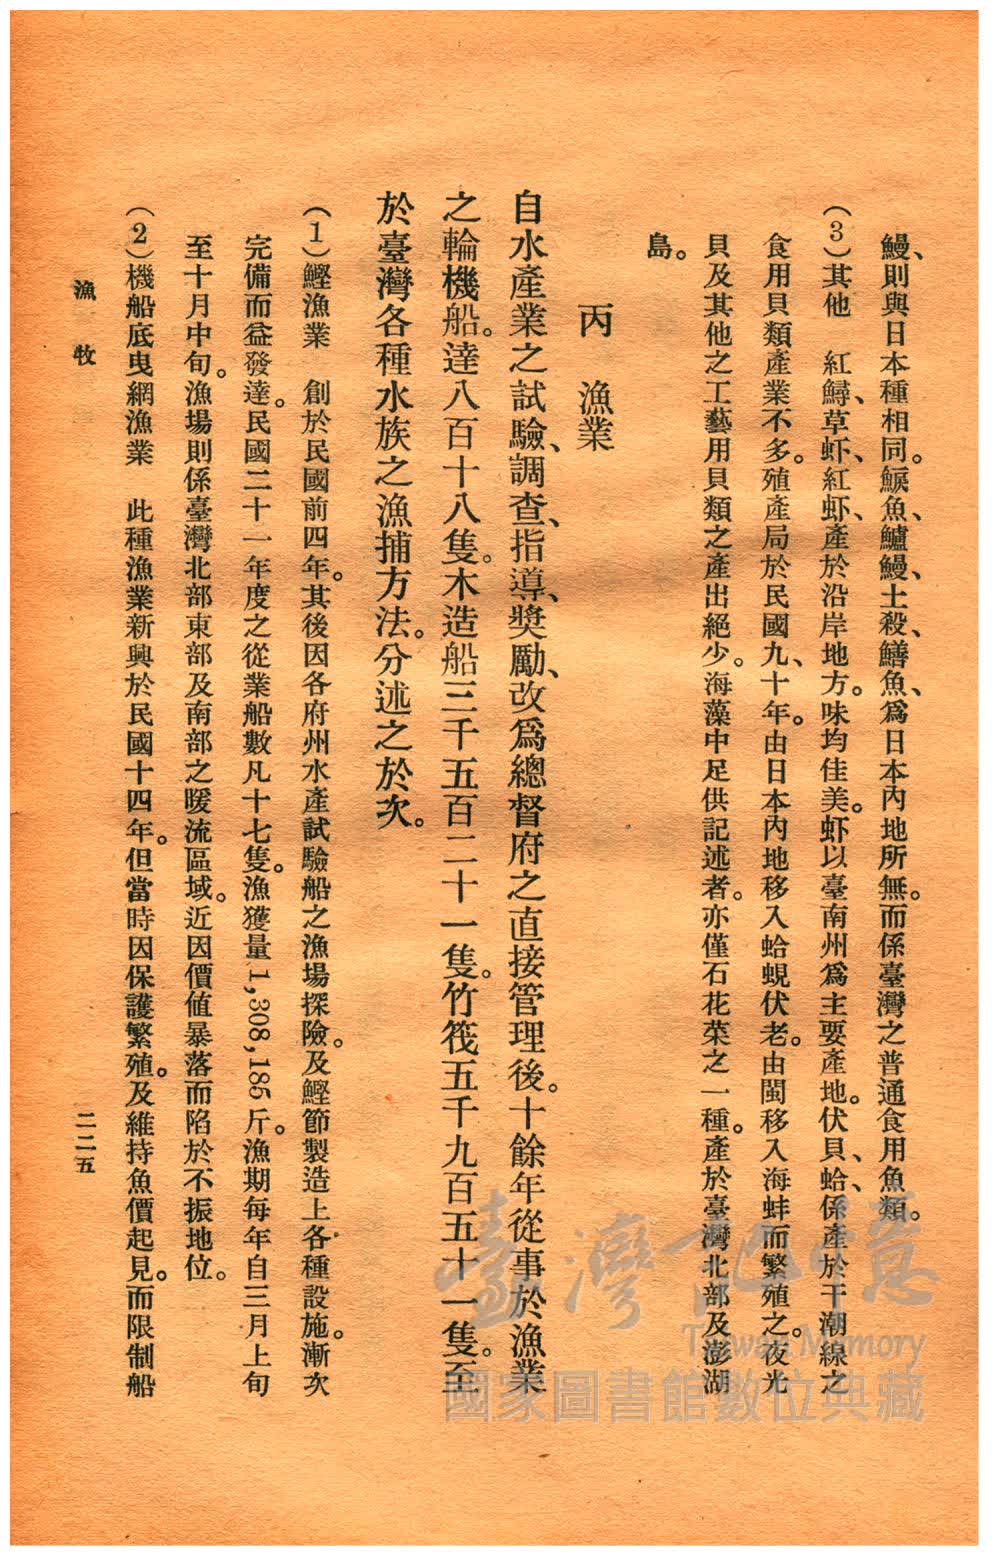 鰻、則與日本種相同。鯇魚、鱸鰻、土殺、鱔魚、爲日本內地所無。而係臺灣之普通食用魚類。
(3)其他　紅鱘、草虾、紅虾、產於沿岸地方。味均佳美。虾以臺南州爲主要產地。伏貝、蛤、係產於干潮線之
食用貝類產業不多。殖產局於民國九、十年。由日本內地移入蛤蜆伏老。由閩移入海蚌而繁殖之。夜光
貝及其他之工藝用貝類之產出絕少。海藻中足供記述者。亦僅石花菜之一種。產於臺灣北部及澎湖
島。
丙　漁業
自水產業之試驗、調查、指導、獎勵、改爲總督府之直接管理後。十餘年從事於漁業
之輪機船。達八百十八隻。木造船三千五百二十一隻。竹筏五千九百五十一隻。至
於臺灣各種水族之漁捕方法。分述之於次。
(1)鰹漁業　創於民國前四年。其後因各府州水產試驗船之漁場探險。及鰹節製造上各種設施。漸次
完備而益發達。民國二十一年度之從業船數凡十七隻。漁獲量1,308,185斤。漁期每年自三月上旬
至十月中旬。漁場則係臺灣北部東部及南部之暖流區域。近因價値暴落而陷於不振地位。
(2)機船底曳網漁業　此種漁業新興於民國十四年。但當時因保護繁殖。及維持魚價起見。而限制船
漁牧
二二五
臺灣記憶
Taiwan Memory
國家圖書館數位典藏